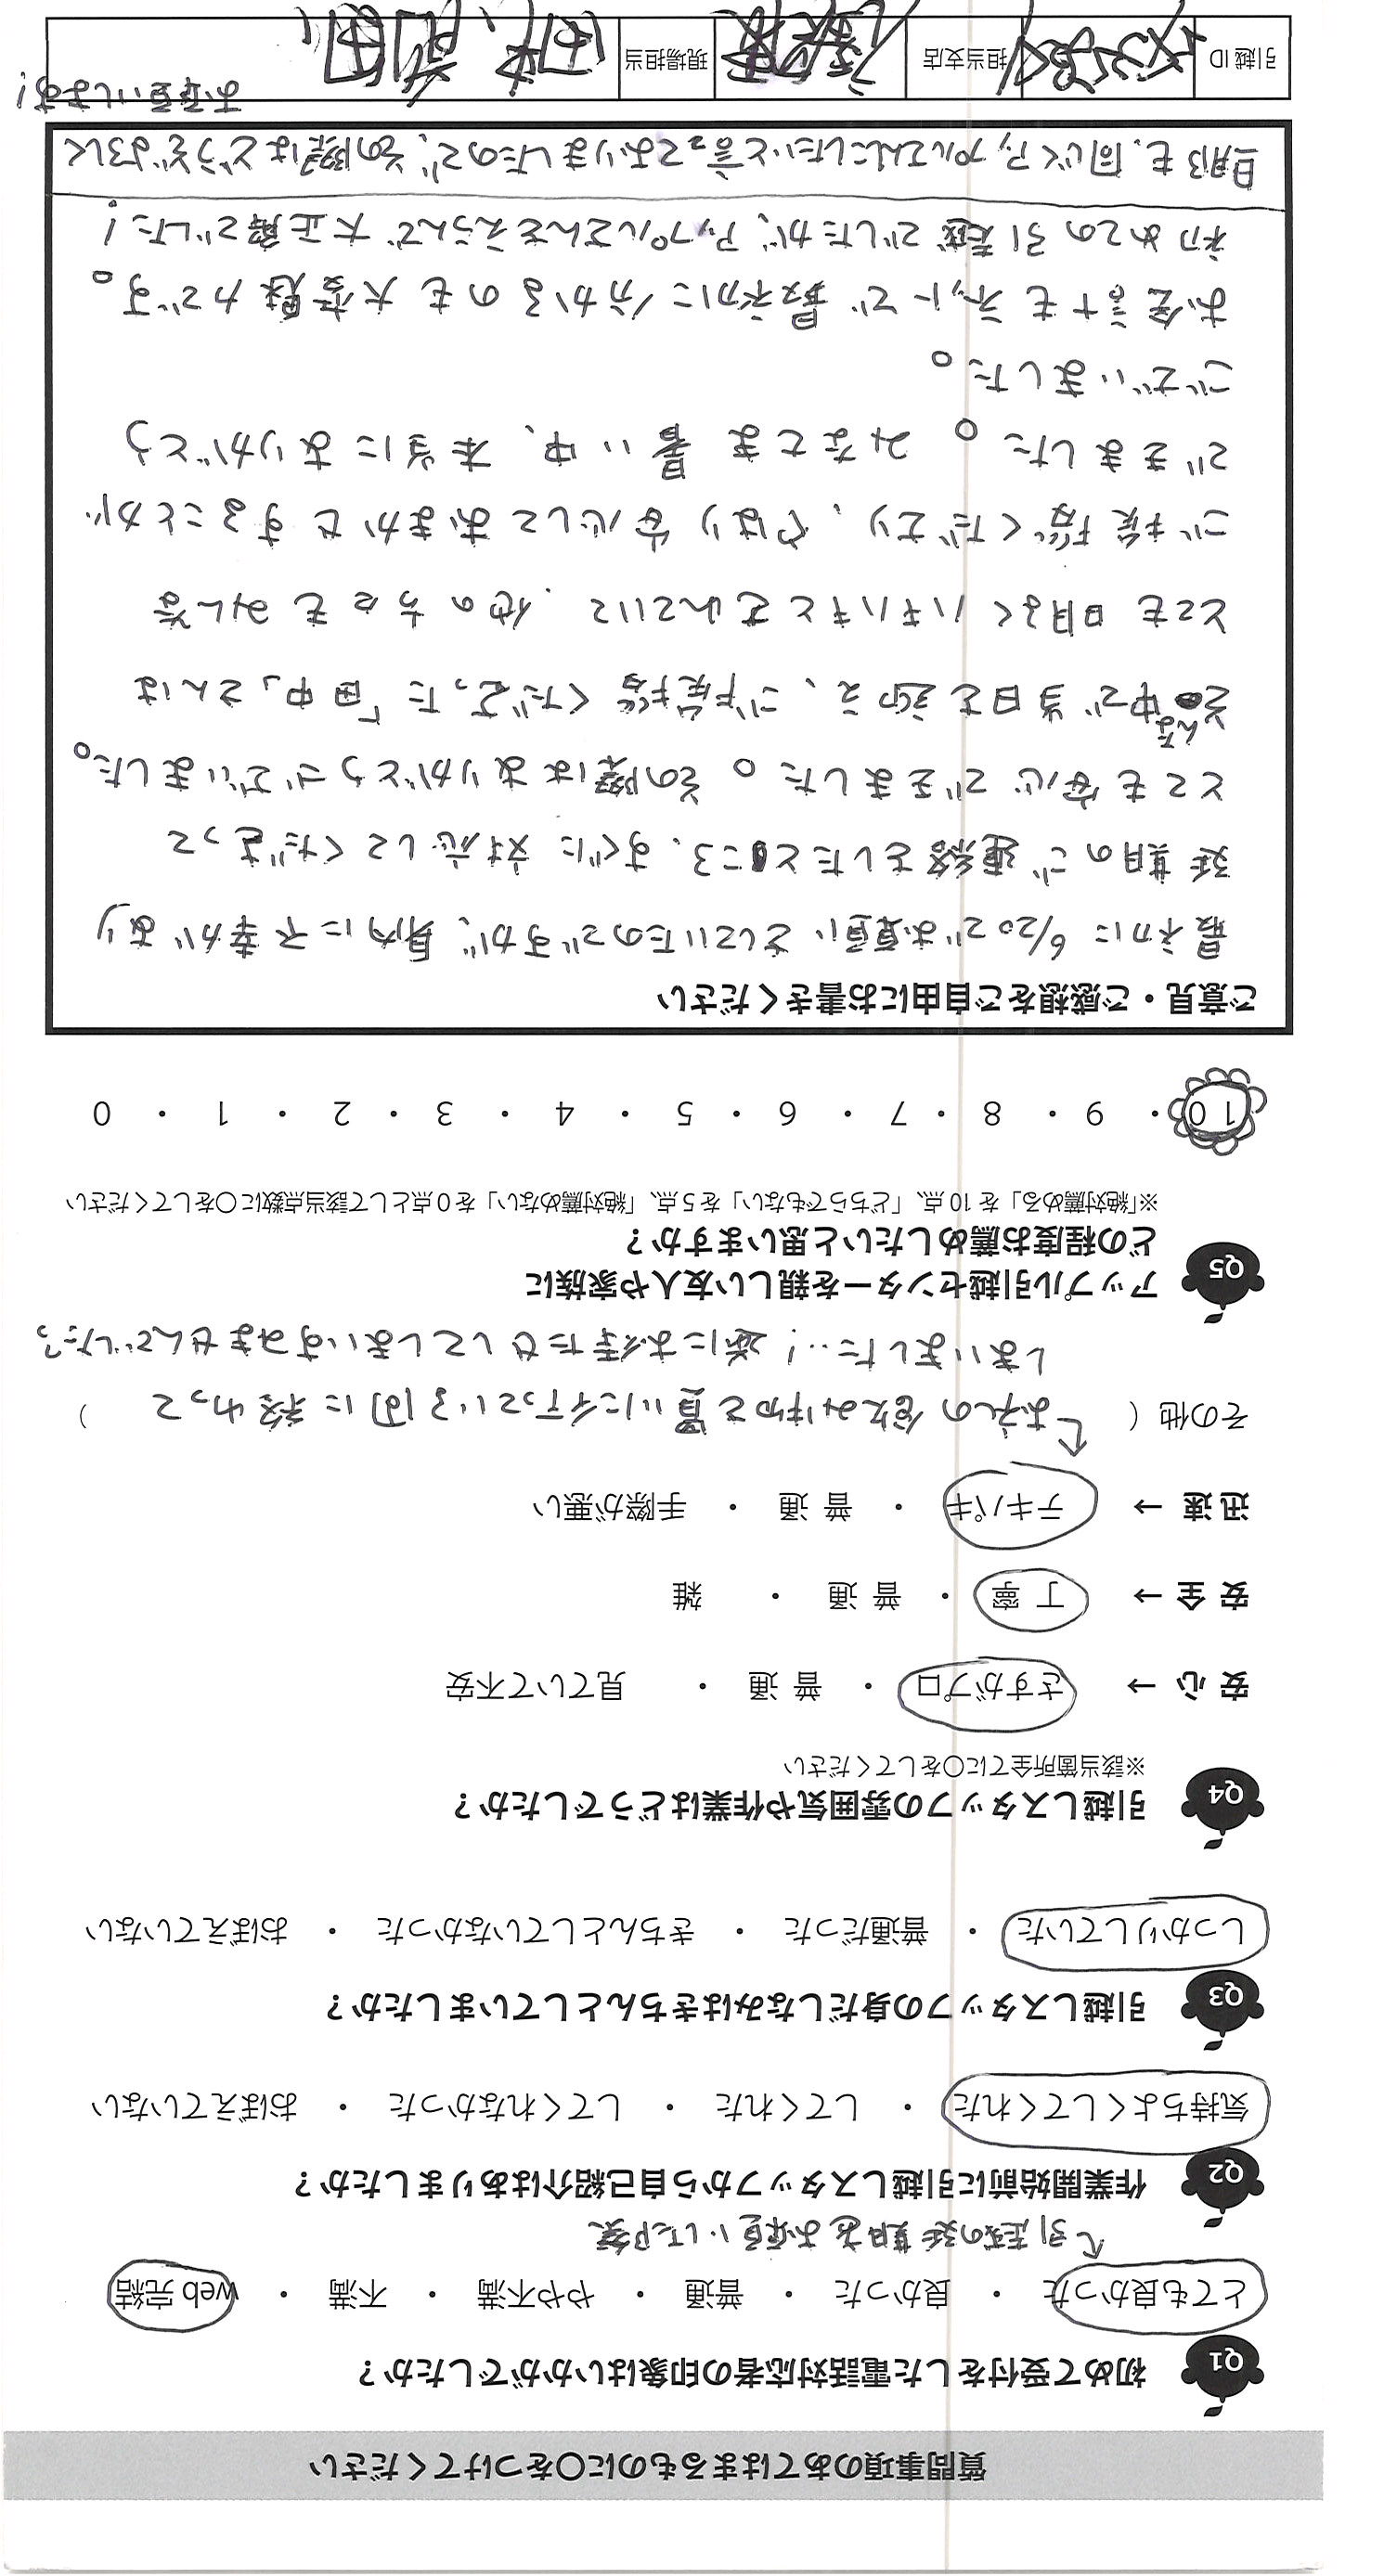 質問事項のあてはまるものに○をつけてください
Q1 初めて受付をした電話対応者の印象はいかがでしたか？
とても良かった ・ 良かった ・ 普通 ・ やや不満 ・ 不満 ・ web 完結
↑引越の延期をお願いした際
Q2 作業開始前に引越しスタッフから自己紹介はありましたか？
気持ちよくしてくれた ・ してくれた ・ してくれなかった ・ おぼえていない
Q3 引越しスタッフの身だしなみはきちんとしていましたか？
しっかりしていた ・ 普通だった ・ きちんとしていなかった ・ おぼえていない
Q4 引越しスタッフの雰囲気や作業はどうでしたか？
※該当箇所全てに○をしてください
安 心 → さすがプロ ・ 普 通 ・ 見ていて不安
安 全 → 丁 寧 ・ 普 通 ・ 雑
迅 速 → テキパキ ・ 普 通 ・ 手際が悪い
その他（ ↑お礼の飲み物を買いに行っている間に終わって ）
しまいました…！逆にお待たせしてしまいすみませんでした。
Q5 アップル引越センターを親しい友人や家族に
どの程度お薦めしたいと思いますか？
※「絶対薦める」を 10 点、「どちらでもない」を 5 点、「絶対薦めない」を 0 点として該当点数に○をしてください
10 ・ 9 ・ 8 ・ 7 ・ 6 ・ 5 ・ 4 ・ 3 ・ 2 ・ 1 ・ 0
ご意見・ご感想をご自由にお書きください
最初に 6/20でお願いをしていたのですが、身内に不幸があり
延期のご連絡をしたところ、すぐに対応してくださって
とても安心できました。その際はありがとうございました。
そんな中で当日を迎え、ご挨拶くださった「田中」さんは
とても明るくハキハキとされていて、他の方々もみな
ご挨拶くださり、やはり安心しておまかせすることが
できました。みなさま暑い中、本当にありがとう
ございました。
お会計もネットで最初に分かるのも大変魅力です。
初めての引越でしたが、アップルさんをえらんで大正解でした！
旦那も、同じくアップルさんにしたいと言っておりましたので、その際はどうぞよろしく
お願いします！
引越 ID
担当支店
現場担当